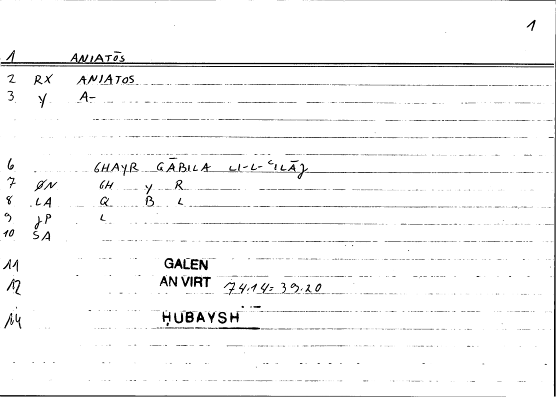 1
1 ANIATŌS
2 RX ANIATOS
3 y A-
6 GHAYR GĀBILA LI-L-ʿILĀJ
7 ØN GH y R
8 LA Q B L
9 JP L
10 SA
11 GALEN
12 AN VIRT 74.14 = 39.20
14 ḤUBAYSH